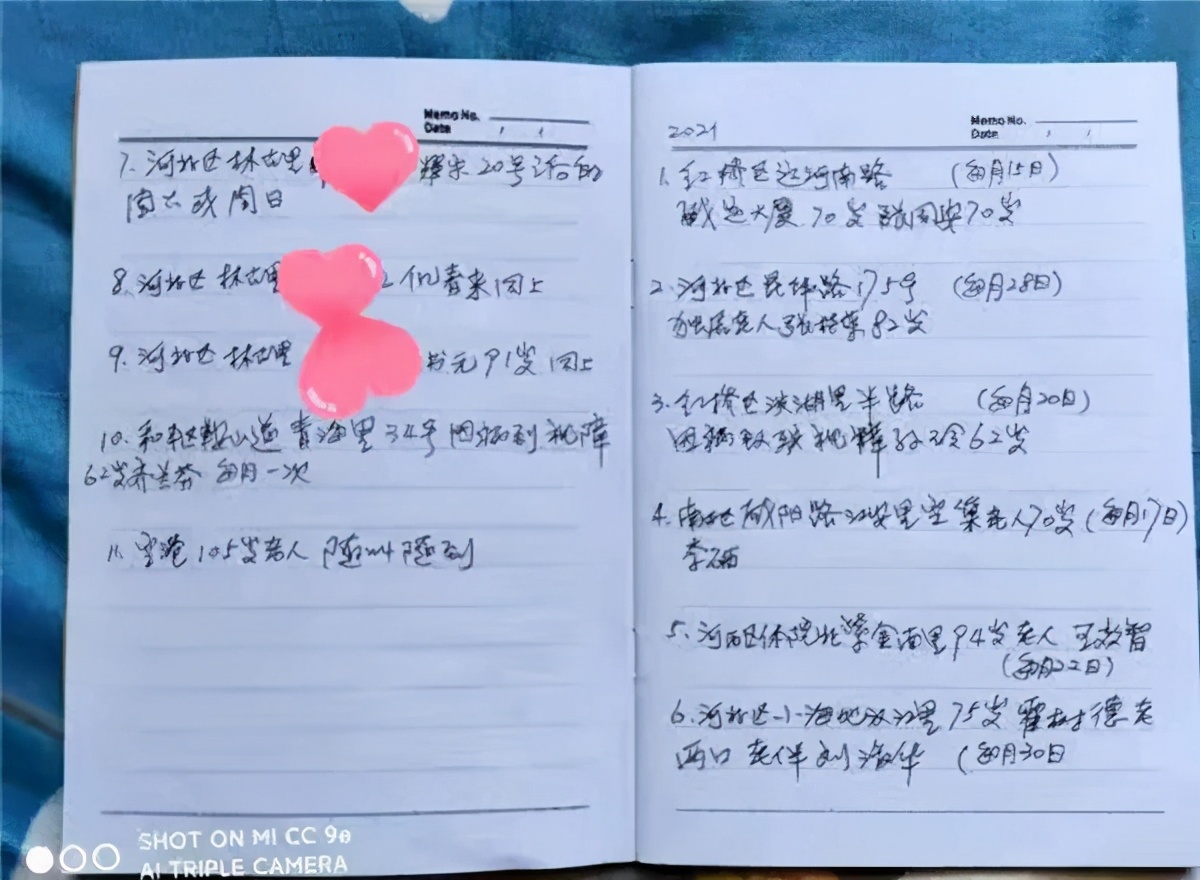 Memo No.
Date
7. 河北区 林古里 辉宋 20号之后的
周六或周日
8. 河北区 林古里 同上
9. 河北区 林古里 书元 91岁 同上
10. 和平区鞍山道 青海里 34号 因病到视障
62岁齐兰芬 每月一次
11. 空港 105岁老人 随叫随到
2021
Memo No.
Date
1. 红桥区 河南路 (每月15日)
大厦 70岁 70岁
2. 河北区昆纬路175号 (每月28日)
独居老人 82岁
3. 红桥区 里 路 (每月20日)
因病致残视障 62岁
4. 南开区咸阳路 里空巢老人70岁 (每月17日)
李
5. 河西区体院北紫金南里94岁老人 王 智
(每月22日)
6. 河 区小海地汉江里 75岁 霍树德老
两口 老伴刘海华 (每月30日
SHOT ON MI CC 9e
AI TRIPLE CAMERA